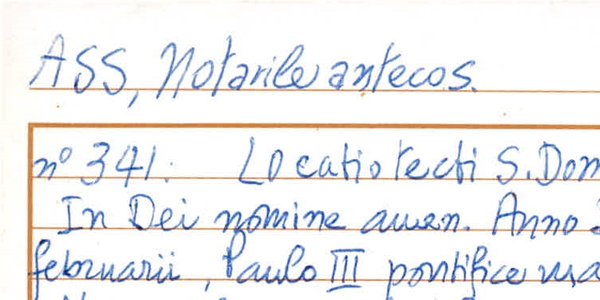 ASS, Notarile antecos.
nº 341. Locatio tecti S. Dom
In Dei nomine amen. Anno
februarii, Paulo III pontifice ma